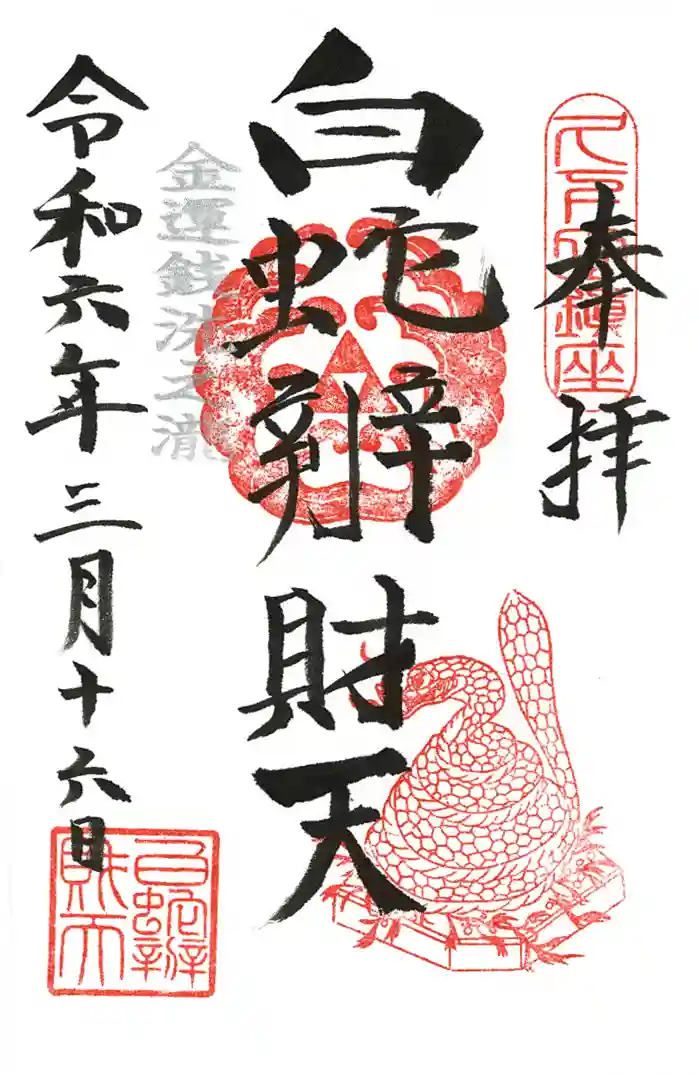 奉拝
白蛇辨財天
金運銭洗之瀧
令和六年三月十六日
白蛇辨財天